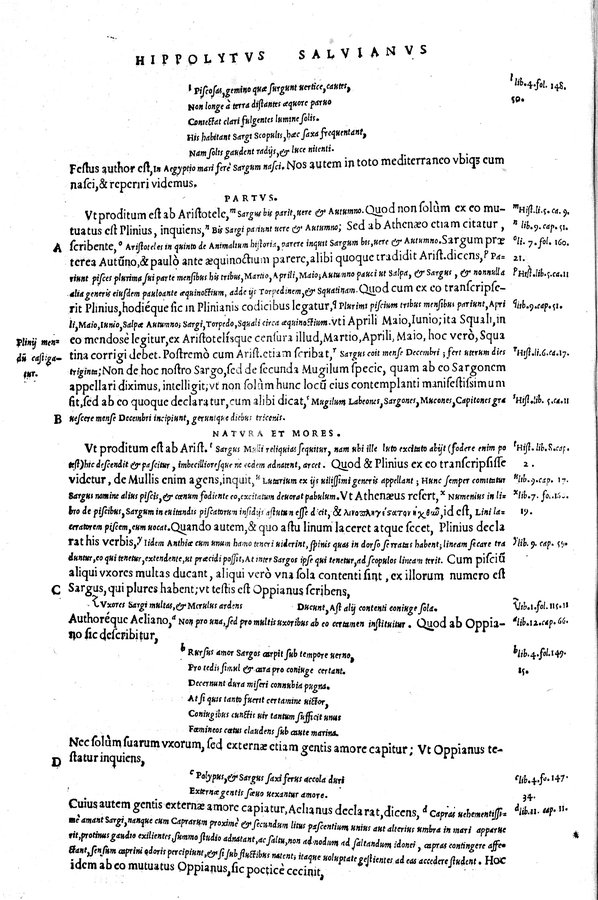 HIPPOLYTVS SALVIANVS
l Piscosas, gemino quæ surgunt uertice, cautes,
l lib.4.fol. 148.
50.
Non longè à terra distantes æquore paruo
Contectat clari fulgentes lumine solis.
His habitant Sargi Scopulis, hæc saxa frequentant,
Nam solis gaudent radijs, & luce nitenti.
Festus author est, In Aegyptio mari ferè Sargum nasci. Nos autem in toto mediterraneo vbiq; eum
nasci, & reperiri videmus.
PARTVS.
Vt proditum est ab Aristotele, m Sargus bis parit, uere & Autumno. Quod non solùm ex eo mu-
m Hist.li.5. ca. 9.
tuatus est Plinius, inquiens, n Bis Sargi pariunt uere & Autumno; Sed ab Athenæo etiam citatur,
n lib.9. cap. 51.
A
scribente, o Aristoteles in quinto de Animalium historia, parere inquit Sargum bis, uere & Autumno. Sargum præ
o li. 7. fol. 160.
21.
terea Autũno, & paulò ante æquinoctium parere, alibi quoque tradidit Arist. dicens, p Pa-
riunt pisces plurima sui parte mensibus his tribus, Martio, Aprili, Maio; Autumno pauci ut Salpa, & Sargus, & nonnulla
p Hist.lib.5.ca.11
alia generis eiusdem pauloante æquinoctium, adde ijs Torpedinem, & Squatinam. Quod cum ex eo transcripse-
rit Plinius, hodiéque sic in Plinianis codicibus legatur, q Plurimi piscium tribus mensibus pariunt, Apri
q lib.9.cap.51.
li, Maio, Iunio, Salpæ Autumno; Sargi, Torpedo, Squali circa æquinoctium. vti Aprili Maio, Iunio; ita Squali, in
Plinij men-
dũ castiga-
tur.
eo mendosè legitur, ex Aristotelísque censura illud, Martio, Aprili, Maio, hoc verò, Squa
tina corrigi debet. Postremò cum Arist. etiam scribat, r Sargus coit mense Decembri; fert uterum dies
r Hist.li.6.ca.17.
triginta; Non de hoc nostro Sargo, sed de secunda Mugilum specie, quam ab eo Sargonem
appellari diximus, intelligit; vt non solùm hunc locũ eius contemplanti manifestissimum
sit, sed ab eo quoque declaratur, cum alibi dicat, s Mugilum Labeones, Sargones, Mucones, Capitones gra
s Hist.lib.5. ca.11
B
uescere mense Decembri incipiunt, geruntque diebus tricenis.
NATVRA ET MORES.
Vt proditum est ab Arist. t Sargus Mulli reliquias sequitur, nam ubi ille luto excitato abijt (fodere enim po
t Hist. lib.8.cap.
2.
test) hic descendit & pascitur, imbecilliorésque ne eodem adnatent, arcet. Quod & Plinius ex eo transcripsisse
videtur, de Mullis enim agens, inquit, u Lutarium ex ijs uilissimi generis appellant; Hunc semper comitatur
u lib.9. cap. 17.
Sargus nomine alius piscis, & cœnum fodiente eo, excitatum deuorat pabulum. Vt Athenæus refert, x Numenius in li
x lib.7. fo.160.
19.
bro de piscibus, Sargum in euitandis piscatorum insidijs astutum esse dicit, & id est, Lini la-
ceratorem piscem, eum uocat. Quando autem, & quo astu linum laceret atque secet, Plinius decla
rat his verbis, y Iidem Anthiæ cum unum hamo teneri uiderint, spinis quas in dorso serratas habent; lineam secare tra
y lib. 9. cap. 59.
duntur, eo qui tenetur, extendente, ut præcidi possit; At inter Sargos ipse qui tenetur, ad scopulos lineam terit. Cum pisciũ
aliqui vxores multas ducant, aliqui verò vna sola contenti sint, ex illorum numero est
C
Sargus, qui plures habent; vt testis est Oppianus scribens,
z Vxores Sargi multas, & Merulus ardens Ducunt, Ast alij contenti coniuge sola.
z lib.1.fol.115.11
Authoréque Aeliano, a Non pro una, sed pro multis uxoribus ab eo certamen instituitur. Quod ab Oppia-
a lib.12.cap. 66.
no sic describitur,
b Rursus amor Sargos carpit sub tempore uerno,
b lib.4.fol.149.
15.
Pro tedis simul & cura pro coniuge certant.
Decernunt dura miseri connubia pugna.
At si quis tanto fuerit certamine uictor,
Coniugibus cunctis uir tantum sufficit unus
Fœmineos cœtus claudens sub caute marina.
Nec solùm suarum vxorum, sed externæ etiam gentis amore capitur; Vt Oppianus te-
D
statur inquiens,
c Polypus, & Sargus saxi ferus accola duri
c lib.4.fo.147.
34.
Externæ gentis sæuo uexantur amore.
Cuius autem gentis externæ amore capiatur, Aelianus declarat, dicens, d Capras uehementissi-
d lib.11. cap. 11.
mè amant Sargi, nanque cum Caprarum proximè & secundum litus pascentium unius aut alterius umbra in mari apparue
rit, protinus gaudio exilientes, summo studio adnatant, ac saltu, non admodum ad saltandum idonei, capras contingere affe-
ctant, sensum caprini odoris percipiunt, & si sub fluctibus natent; itaque uoluptate gestientes ad eas accedere student. Hoc
idem ab eo mutuatus Oppianus, sic poëticè cecinit,